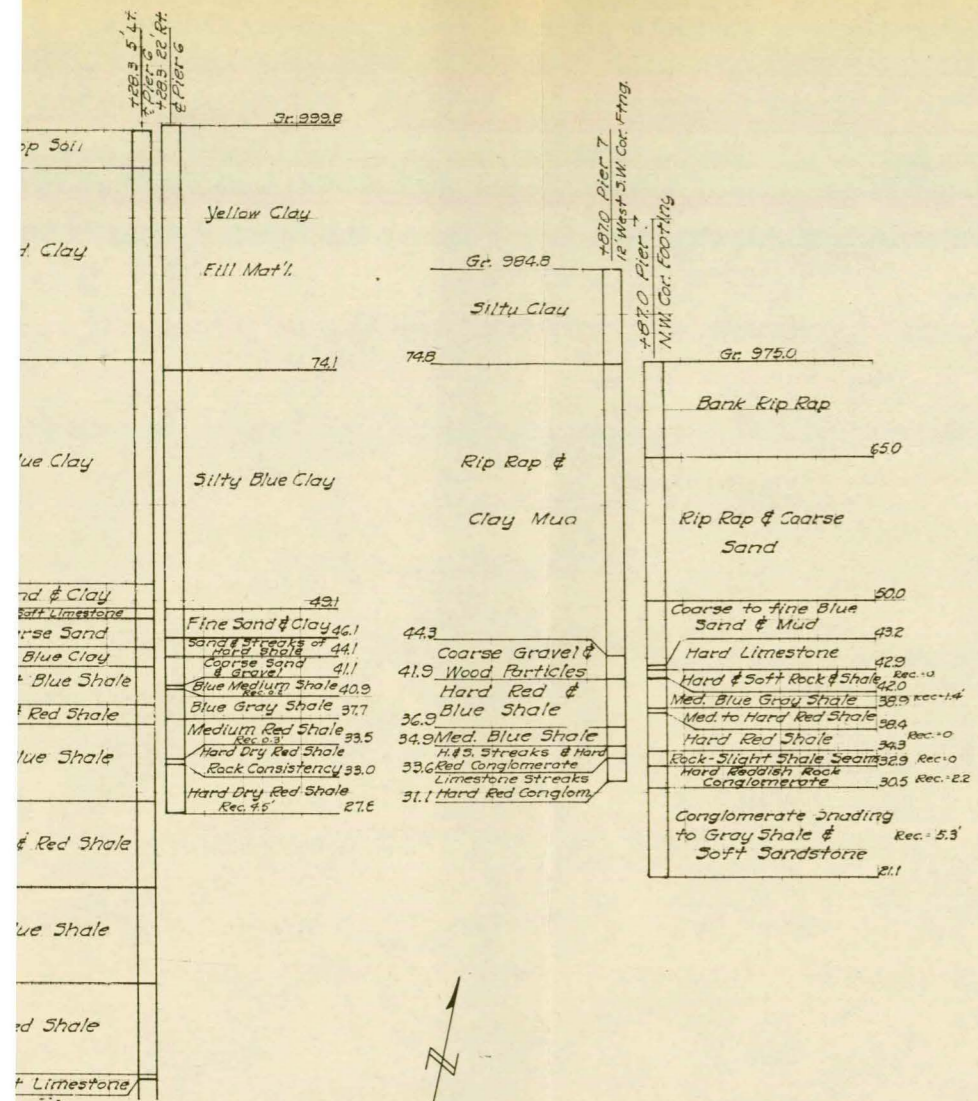 +28.3 5' Lt.
℄ Pier 6
+28.3 22' Rt.
℄ Pier 6
Soil
Clay
Clay
& Clay
Soft Limestone
Sand
Blue Clay
Blue Shale
Red Shale
Shale
& Red Shale
Shale
Shale
Limestone
Gr. 999.8
Yellow Clay
Fill Mat'l.
74.1
Silty Blue Clay
49.1
Fine Sand & Clay 46.1
Sand & Streaks of
Hard Shale 44.1
Coarse Sand
& Gravel 41.1
Blue Medium Shale 40.9
Blue Gray Shale 37.7
Medium Red Shale 33.5
Rec. 0.3'
Hard Dry Red Shale
Rock Consistency 33.0
Hard Dry Red Shale
Rec. 4.5' 27.8
+87.0 Pier 7
12' West S.W. Cor. Ftng.
Gr. 984.8
Silty Clay
74.8
Rip Rap &
Clay Mud
44.3
Coarse Gravel &
41.9 Wood Particles
Hard Red &
Blue Shale
36.9
34.9 Med. Blue Shale
H.&S. Streaks & Hard
33.6 Red Conglomerate
Limestone Streaks
31.1 Hard Red Conglom.
+87.0 Pier
N.W. Cor. Footing
Gr. 975.0
Bank Rip Rap
65.0
Rip Rap & Coarse
Sand
50.0
Coarse to fine Blue
Sand & Mud
43.2
Hard Limestone
42.9
Hard & Soft Rock & Shale Rec.=0
42.0
Med. Blue Gray Shale 38.9 Rec=1.4'
Med. to Hard Red Shale
38.4
Hard Red Shale Rec.=0
34.3
Rock-Slight Shale Seams 32.9 Rec=0
Hard Reddish Rock
Conglomerate 30.5 Rec.=2.2
Conglomerate Shading
to Gray Shale & Rec.= 5.3'
Soft Sandstone
21.1
N